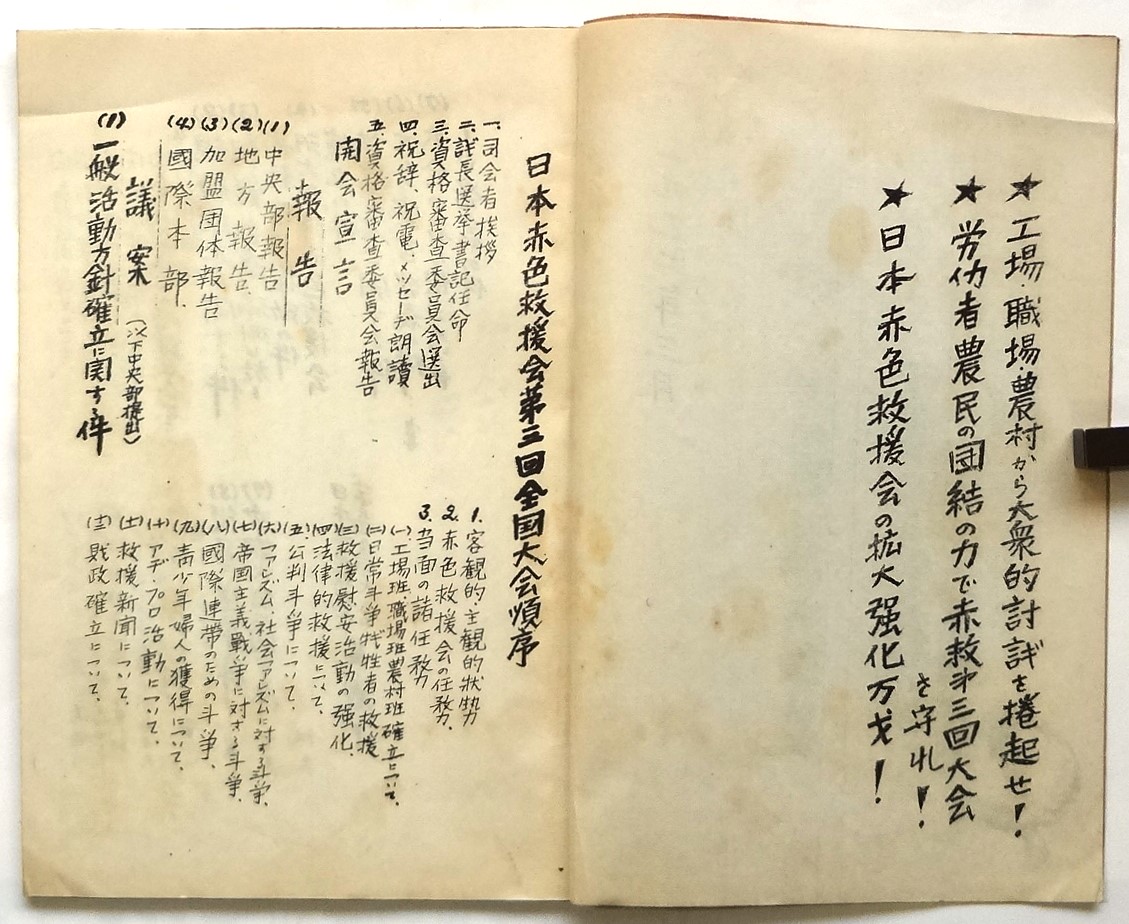 ★工場、職場、農村から大衆的討議を捲起せ!
★労仂者農民の団結の力で赤救第三回大会
を守れ!
★日本赤色救援会の拡大強化万才!
日本赤色救援会第三回全国大会順序
一、司会者挨拶
二、議長選挙書記任命
三、資格審査委員会選出
四、祝辞、祝電、メッセーヂ朗讀
五、資格審査委員会報告
開会宣言
報告
(1)中央部報告
(2)地方報告
(3)加盟団体報告
(4)國際本部
議案
(以下中央部提出)
(1)一般活動方針確立に関する件
1.客観的、主観的狀勢
2.赤色救援会の任務、
3.当面の諸任務
(一)工場班、職場班農村班確立について、
(二)日常斗争犠牲者の救援
(三)救援慰安活動の強化、
(四)法律的救援について、
(五)公判斗争について、
(六)ファシズム、社会ファシズムに対する斗争、
(七)帝国主義戰争に対する斗争、
(八)國際連帯のための斗争、
(九)青少年婦人の獲得について、
(十)アヂ・プロ活動について、
(十一)救援新聞について、
(十二)財政確立について、